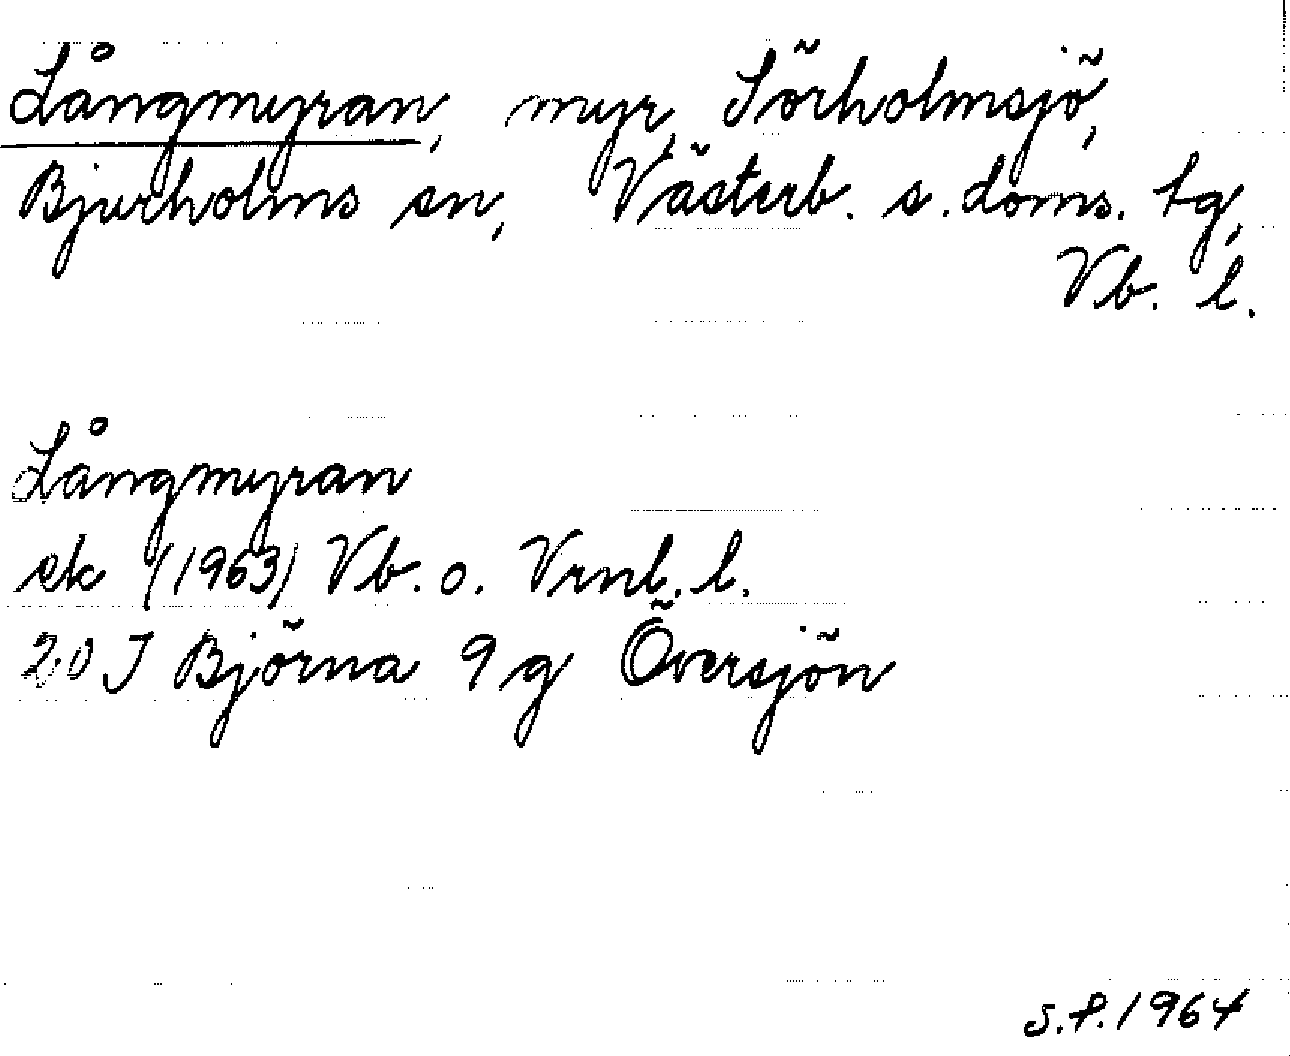 Långmyran, myr, Sörholmsjö,
Bjurholms sn, Västerb. s. doms. tg,
Vb. l.
Långmyran
ek (1963) Vb. o. Vrnl. l.
20 J Björna 9 g Översjön
S.P. 1964